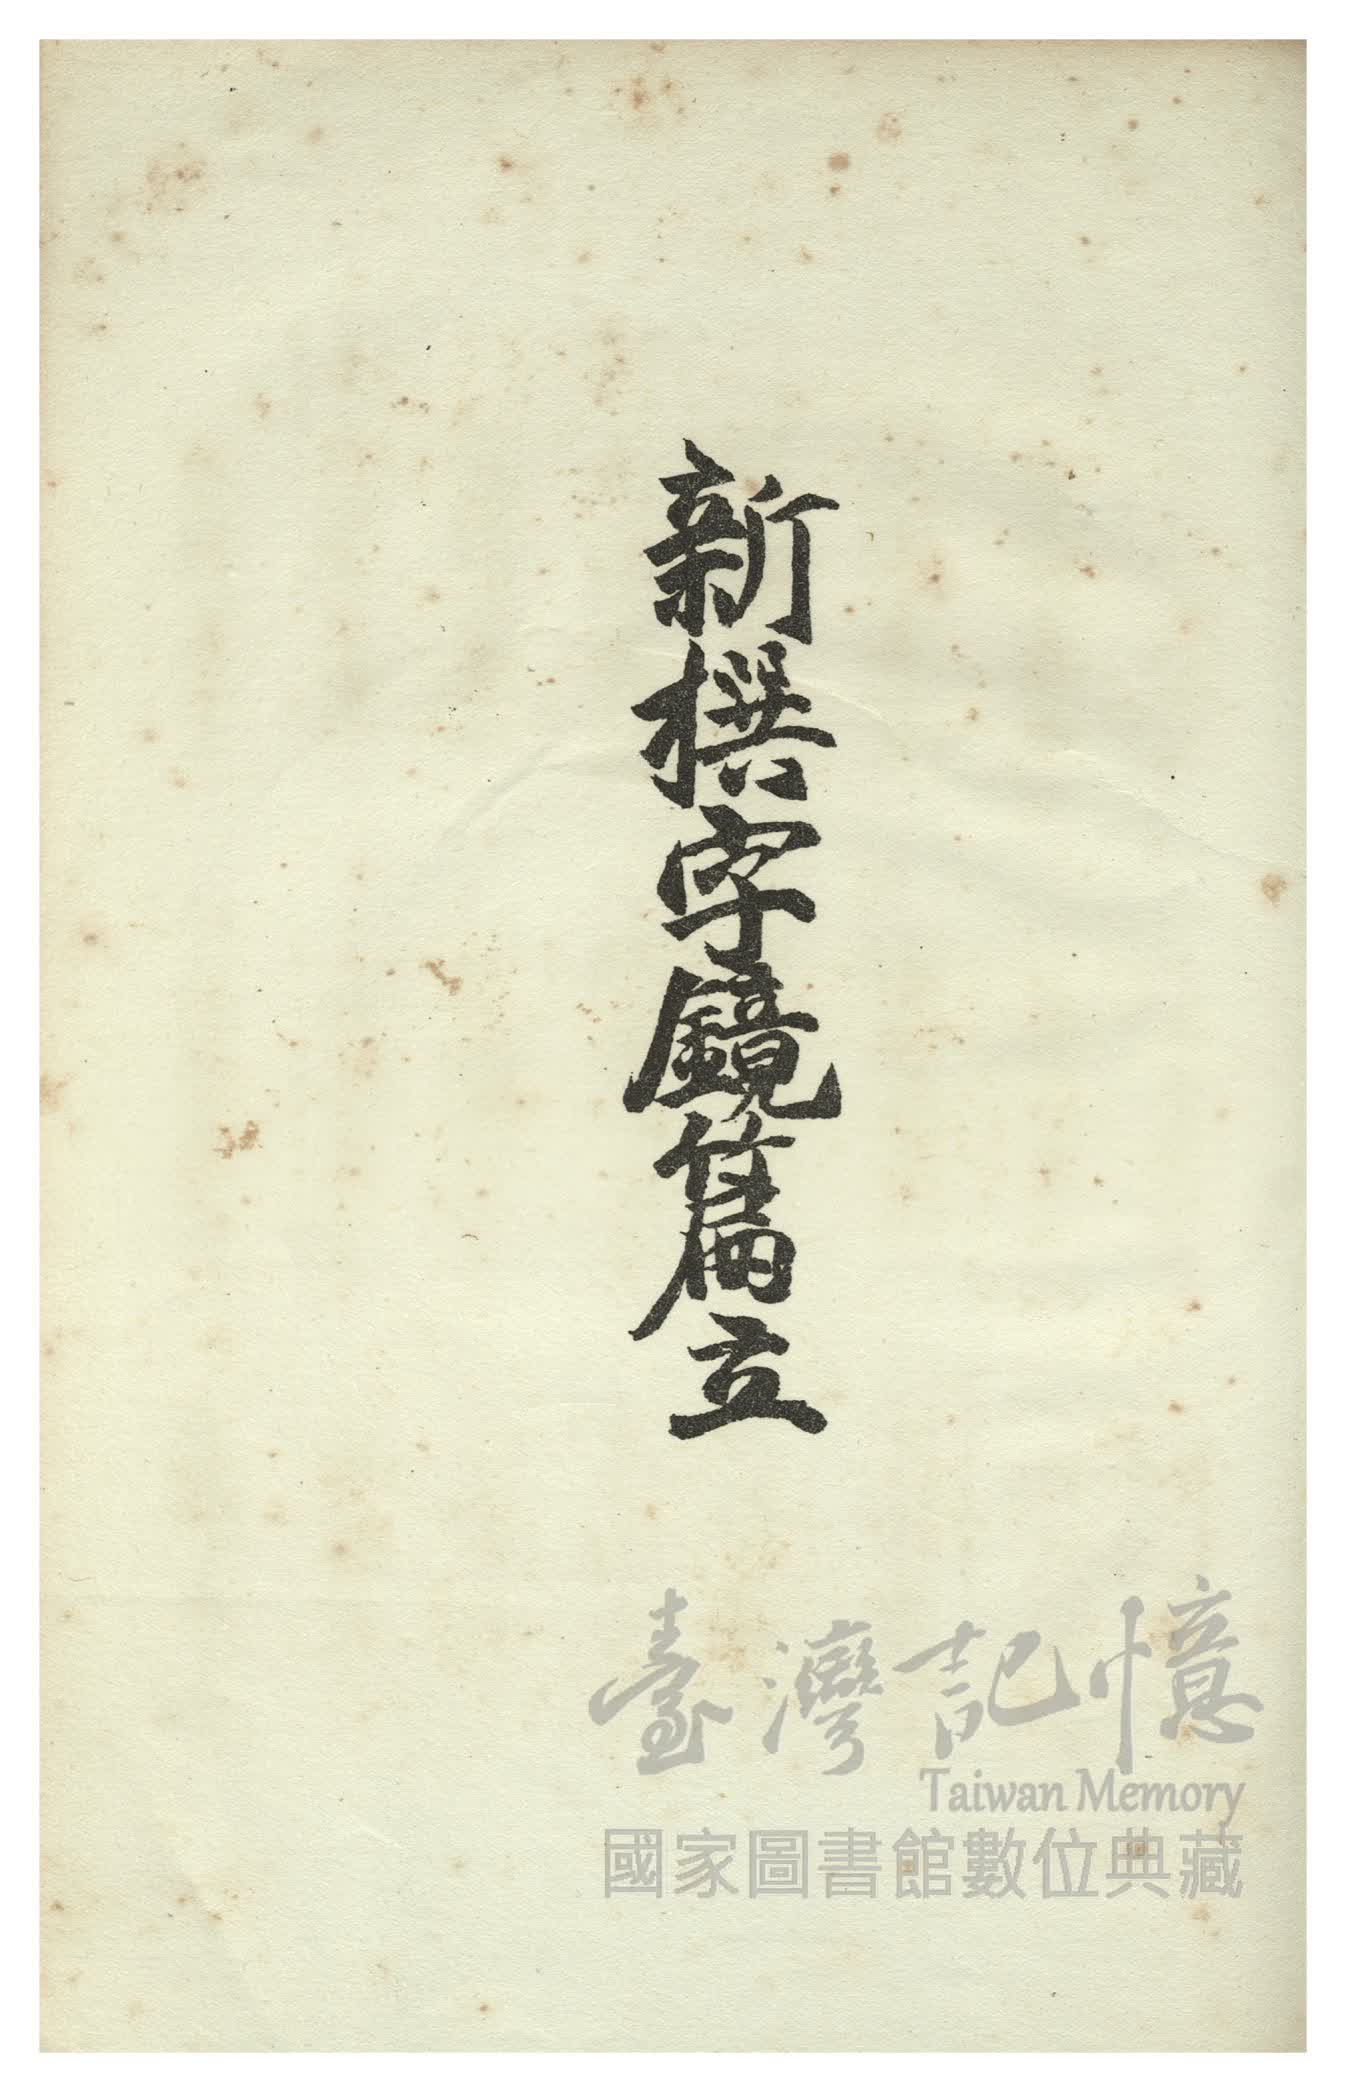 新撰字鏡篇立
臺灣記憶
Taiwan Memory
國家圖書館數位典藏